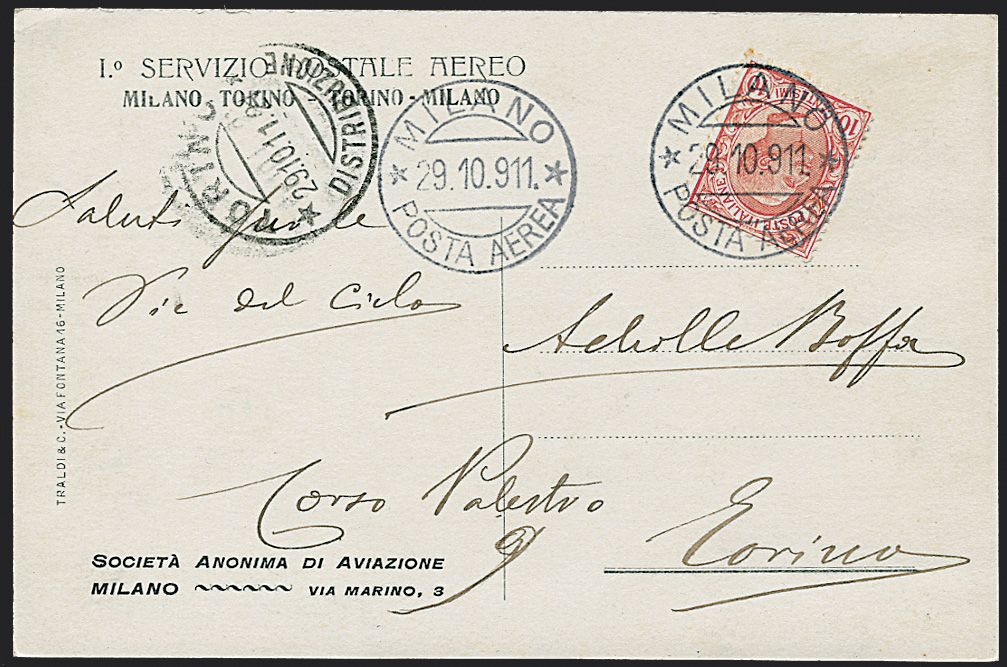 I.º SERVIZIO POSTALE AEREO
MILANO - TORINO - TORINO - MILANO
TORINO DISTRIBUZIONE
29.10.11
MILANO
29.10.911.
POSTA AEREA
MILANO
29.10.911.
POSTA AEREA
POSTE ITALIANE
CENTESIMI
10
10
Saluti
Vie del Cielo
Achille Boffa
Corso Palestro
9
Torino
SOCIETÀ ANONIMA DI AVIAZIONE
MILANO VIA MARINO, 3
TRALDI & C. - VIA FONTANA 16 - MILANO